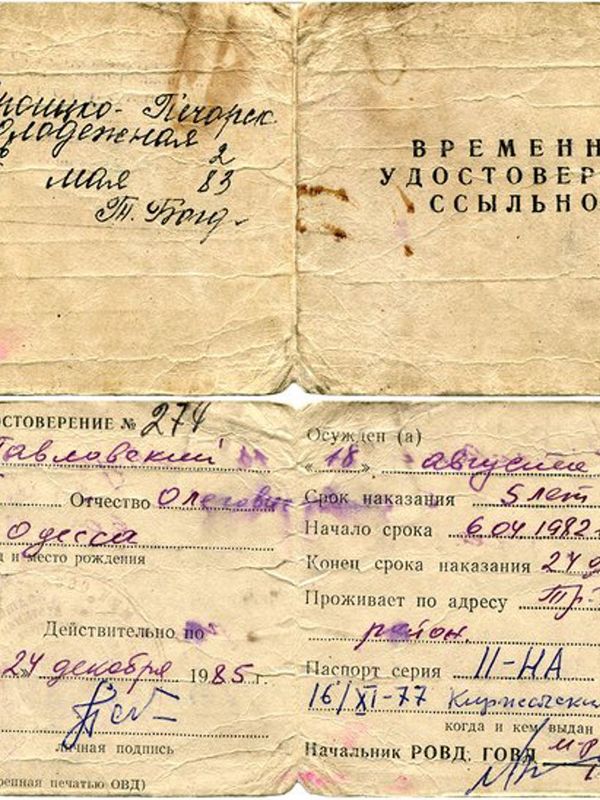 роицко-Печорск
олодежная
2
мая 83
Т. Богд-
ВРЕМЕНН
УДОСТОВЕР
ССЫЛЬНО
ОСТОВЕРЕНИЕ № 274
Павловский
Отчество Олегович
Одесса
д и место рождения
Действительно по
"24" декабря 1985 г.
личная подпись
репная печатью ОВД)
Осужден (а)
"18" августа
Срок наказания 5 лет
Начало срока 6 04 1982
Конец срока наказания 24 д
Проживает по адресу Тр-
район.
Паспорт серия II-НА
16/XI-77 Киржачский
когда и кем выдан
Начальник РОВД, ГОВД